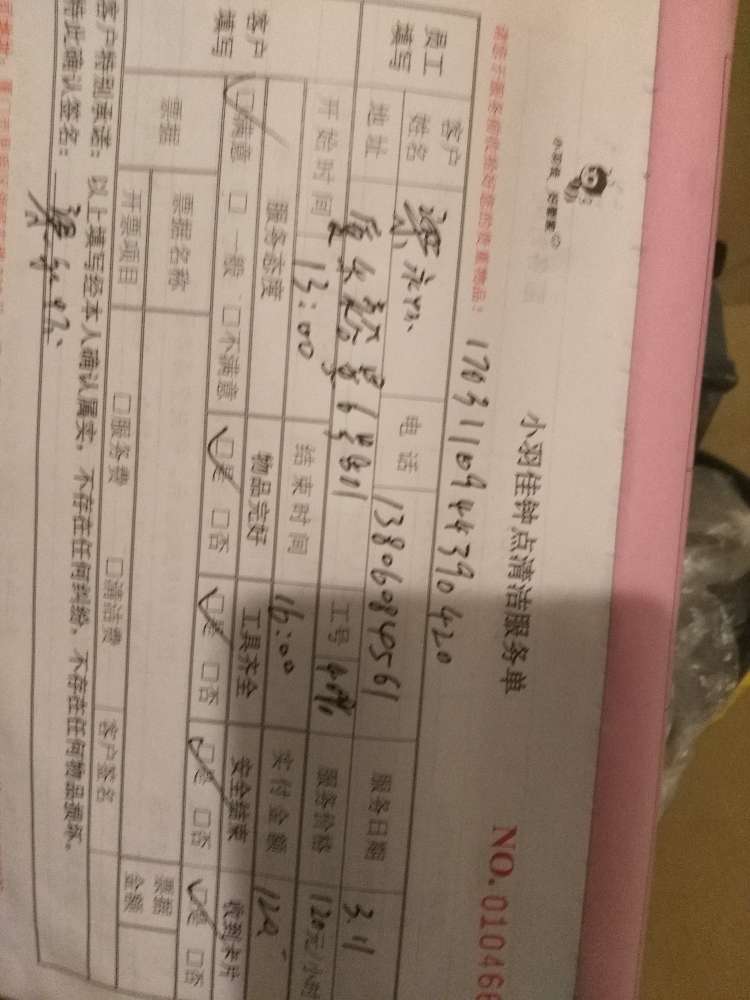 小羽佳 好管家
小羽佳钟点清洁服务单
NO.010466
请您于服务前收拾好您的贵重物品:
1703110944390420
员工填写
客户姓名
电话 13806084561
服务日期 3.11
地址
6号801
工号
服务价格 120元/小时
开始时间 13:00
结束时间 16:00
实付金额 120
客户填写
服务态度 物品完好 工具齐全 安全结束 收到卡片
☑满意 □一般 □不满意 ☑是 □否 ☑是 □否 ☑是 □否 ☑是 □否
票据
票据名称
票据金额
开票项目 □服务费 □清洁费 客户签名
客户特别承诺:以上填写经本人确认属实,不存在任何纠纷,不存在任何物品损坏。
特此确认签名: